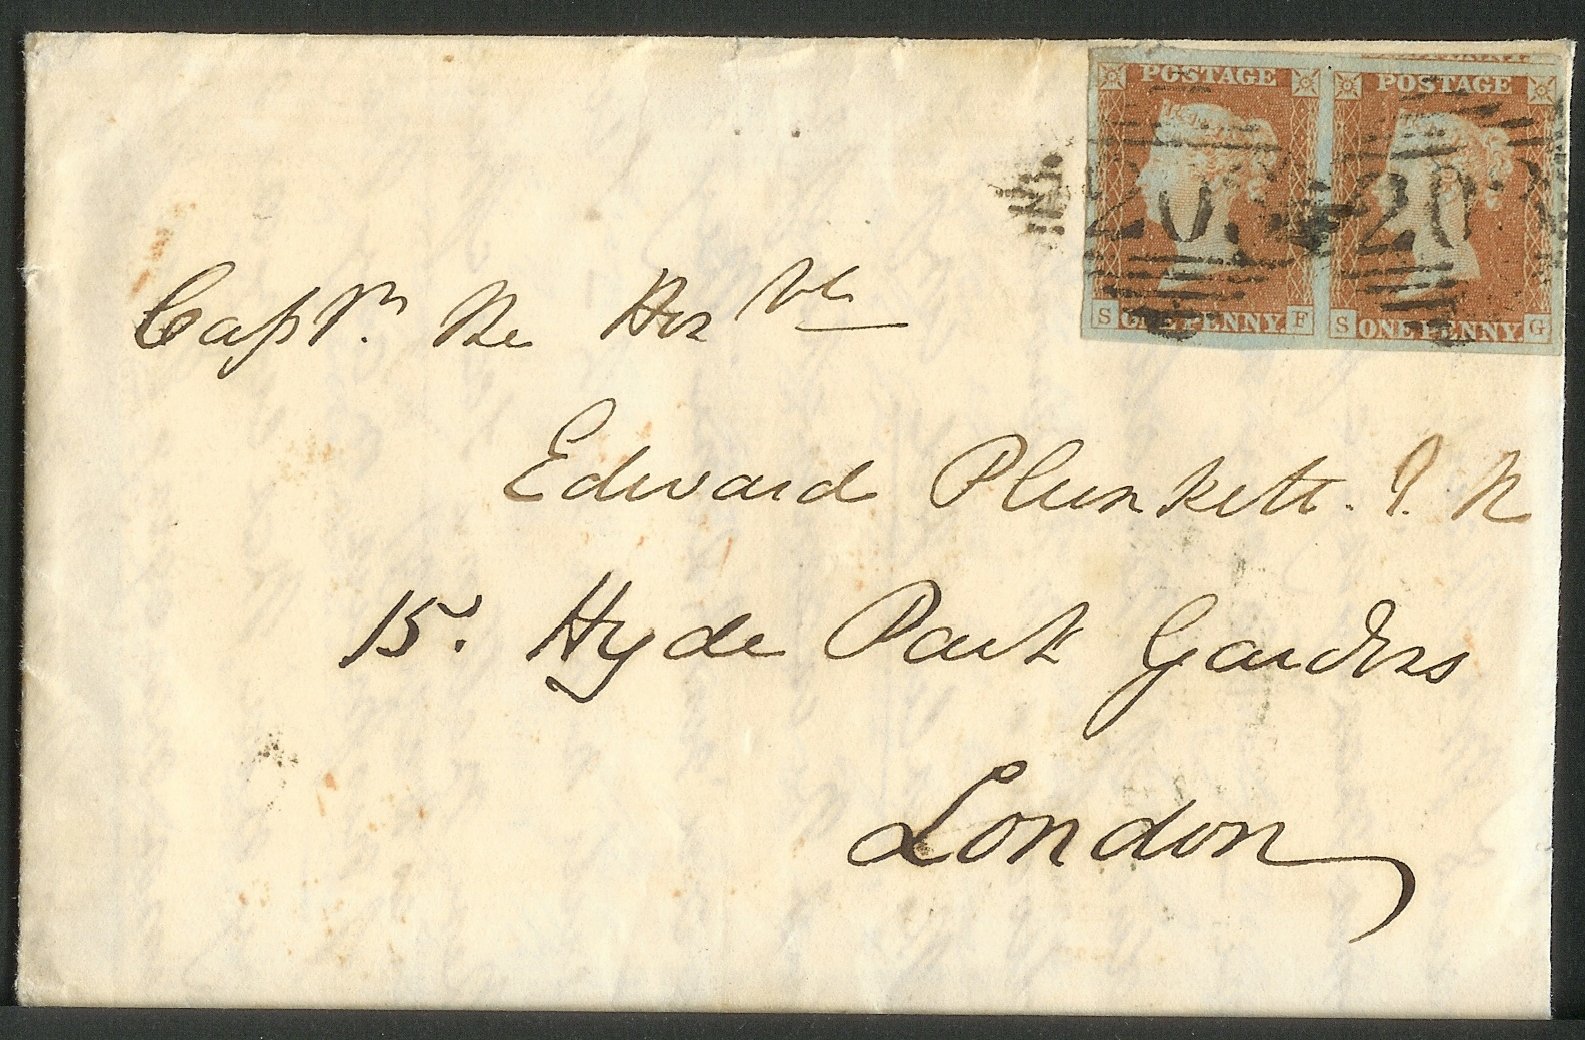 POSTAGE POSTAGE
203 203
S ONE PENNY F S ONE PENNY G
Capt. The Honble
Edward Plunkett. R. N
15. Hyde Park Gardens
London